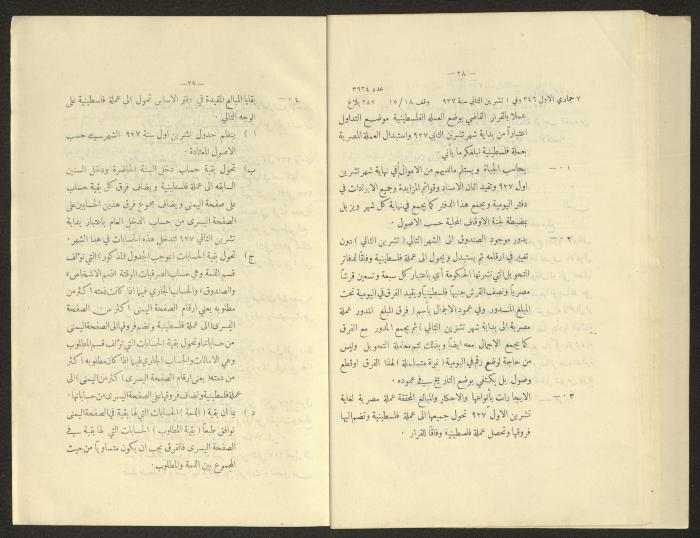 — ٢٨ —
عدد ٣٩٢٤
٧ جمادي الاول ٣٤٦ وفي ١ تشرين الثاني سنة ٩٢٧ وقف ١٥/١٨ ٢٨٧ بلاغ
عملا بالقرار القاضي بوضع العملة الفلسطينية موضع التداول
اعتباراً من بداية شهر تشرين الثاني ٩٢٧ واستبدال العملة المصرية
بعملة فلسطينية نبلغكم ما يأتي:
٠١ — يحاسب الجباة ويستلم مالديهم من الاموال في نهاية شهر تشرين
اول ٩٢٧ وتقيد اثمان الاسناد وقوائم المزايدة وجميع الايرادات في
دفتر اليومية ويجمع هذا الدفتر كما يجمع في نهاية كل شهر ويزيل
بمضبطة لجنة الاوقاف المحلية حسب الاصول.
٠٢ — يدور موجود الصندوق الى الشهر التالي (تشرين الثاني) دون
تغيير في ارقامه ثم يستبدل ويحول الى عملة فلسطينية وفاقا لدفاتر
التحويل التي نشرتها الحكومة أي باعتبار كل سبعة وتسعين قرشا
مصرياً ونصف القرش جنيهاً فلسطينياً ويقيد الفرق في اليومية تحت
المبلغ المدور وفي عمود الاجمال باسم (فرق المبلغ المدور عملة
مصرية الى بداية شهر تشرين الثاني) ثم يجمع المدور مع الفرق
كما يجمع الاجمال معه ايضاً وبذلك تتم معاملة التحويل وليس
من حاجة لوضع رقم في اليومية (نمرة متسلسلة) لهذا الفرق او قطع
وصول بل يكتفى بوضع التاريخ في عموده.
٠٣ — الايجارات بأنواعها والاحكار والمبالغ المحققة عملة مصرية لغاية
تشرين الاول ٩٢٧ تحول جميعها الى عملة فلسطينية وتضم اليها
فروقها وتحصل عملة فلسطينية وفاقا للقرار.
— ٢٩ —
٠٤ — بقايا المبالغ المقيدة في دفتر الاساس تحول الى عملة فلسطينية على
الوجه التالي.
ا) ينظم جدول تشرين اول سنة ٩٢٧ الشهري حسب
الاصول المعتادة.
ب) تحول بقية حساب دخل السنة الحاضرة ودخل السنين
السابقه الى عملة فلسطينية ويضاف فرق كل بقية حساب
على صفحة اليمنى ويضاف مجموع فرق هذين الحسابين على
الصفحة اليسرى من حساب الدخل العام باعتبار بداية
تشرين الثاني ٩٢٧ لتدخل هذه الحسابات في هذا الشهر.
ج) تحول بقية الحسابات (بموجب الجدول المذكور) التي تؤالف
قسم الذمة وهي حساب الصرفيات الموقتة «ذمم الاشخاص»
والصندوق، والحساب الجاري فيما اذا كانت ذمته اكثر من
مطلوبه يعني ارقام الصفحة اليمنى اكثر من الصفحة
اليسرى الى عملة فلسطينية وتضم فروقها الى الصفحة اليمنى
من حساباتها وتحول بقية الحسابات التي تؤالف قسم المطلوب
وهي الامانات والحساب الجاري فيما اذا كان مطلوبه اكثر
من ذمته: يعني ارقام الصفحة اليسرى اكثر من اليمنى الى
عملة فلسطينية وتضاف فروقها على الصفحة اليسرى من حساباتها.
د) بما ان بقية (الذمة) الحسابات التي لها بقية في الصفحة اليمنى
توافق طبعاً (بقية المطلوب) الحسابات التي لها بقية في
الصفحة اليسرى فالفرق يجب ان يكون متساوياً من حيث
المجموع بين الذمة والمطلوب.